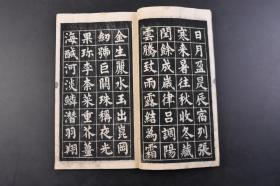 日月盈昃辰宿列張
寒來暑往秋收冬藏
閏餘成歲律呂調陽
雲騰致雨露結為霜
金生麗水玉出崑岡
劒號巨闕珠稱夜光
果珎李柰菜重芥薑
海鹹河淡鱗潛羽翔